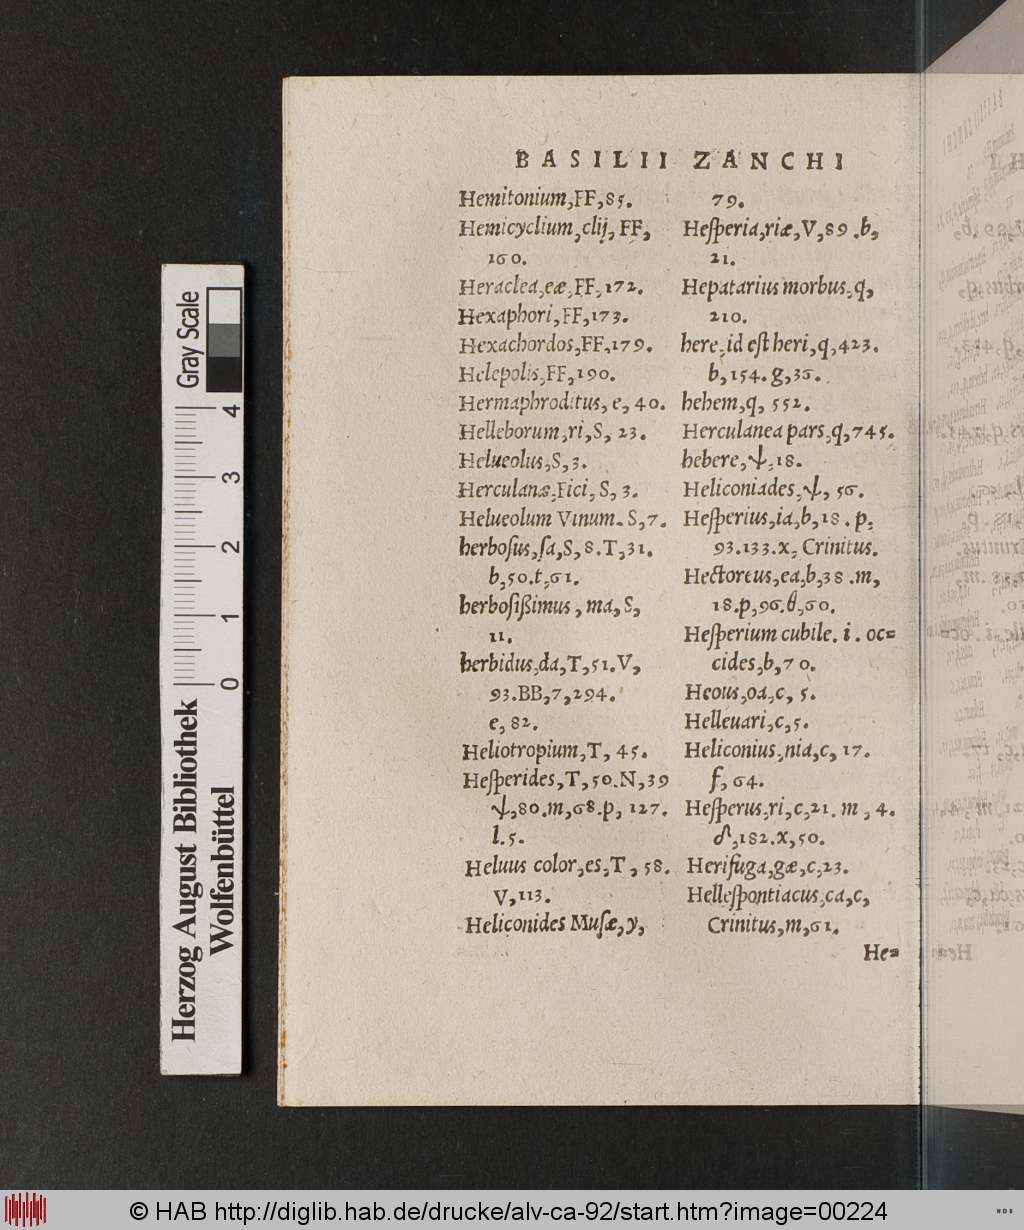 BASILII ZANCHI
Hemitonium,FF,85.
Hemicyclium,clij,FF,
160.
Heraclea,eæ,FF,172.
Hexaphori,FF,173.
Hexachordos,FF,179.
Helepolis,FF,190.
Hermaphroditus, e, 40.
Helleborum,ri,S, 23.
Helueolus,S,3.
Herculanæ,Fici,S, 3.
Helueolum Vinum. S,7.
herboſus,ſa,S,8.T,31.
b,50.t,61.
herboſißimus, ma, S,
11.
herbidus,da,T,51.V,
93.BB,7,294.
e, 82.
Heliotropium,T, 45.
Heſperides,T,50.N,39
ψ,80.m,68.p, 127.
l.5.
Heluus color,es,T, 58.
V,113.
Heliconides Muſæ,y,
79.
Heſperia,riæ,V,89.b,
21.
Hepatarius morbus,q,
210.
here,id eſt heri,q,423.
b,154.g,36.
hehem,q, 552.
Herculanea pars,q,745.
hebere,ψ,18.
Heliconiades,ψ, 56.
Heſperius,ia,b,18.p,
93.133.x, Crinitus.
Hectoreus,ea,b,38.m,
18.p,96.θ,60.
Heſperium cubile. i. oc=
cides,b,70.
Heous,oa,c, 5.
Helleuari,c,5.
Heliconius,nia,c, 17.
f, 64.
Heſperus,ri,c,21. m, 4.
,182.x,50.
Herifuga,gæ,c,23.
Helleſpontiacus,ca,c,
Crinitus,m,61.
He=
Gray Scale
4
3
2
1
0
Herzog August Bibliothek
Wolfenbüttel
© HAB http://diglib.hab.de/drucke/alv-ca-92/start.htm?image=00224
WDB